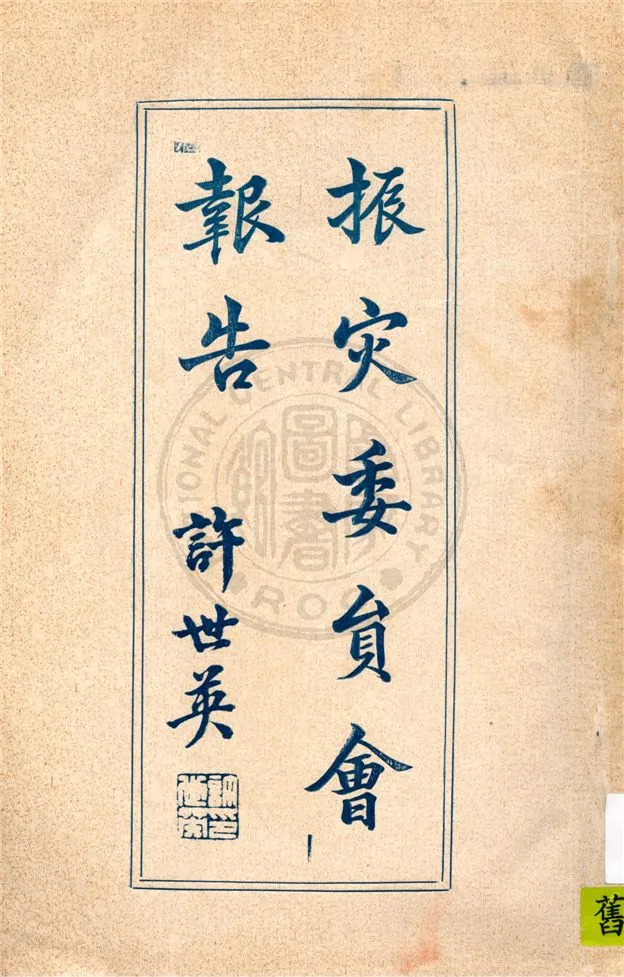 振灾委員會
報告
許世英
NATIONAL CENTRAL LIBRARY
ROC
舊